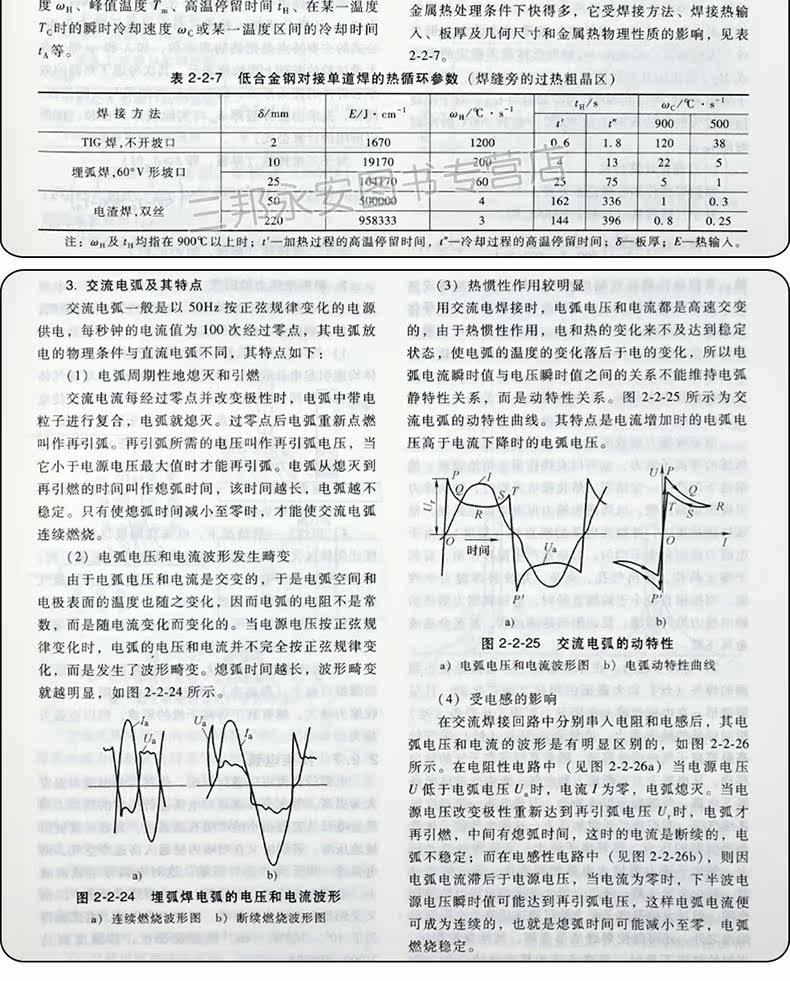 度 ωH、峰值温度 Tm、高温停留时间 tH、在某一温度
TC时的瞬时冷却速度 ωC或某一温度区间的冷却时间
tA等。
金属热处理条件下快得多，它受焊接方法、焊接热输
入、板厚及几何尺寸和金属热物理性质的影响，见表
2-2-7。
表 2-2-7 低合金钢对接单道焊的热循环参数（焊缝旁的过热粗晶区）
焊接方法 δ/mm E/J·cm⁻¹ ωH/℃·s⁻¹ tH/s ωC/℃·s⁻¹
t′ t″ 900 500
TIG 焊,不开坡口 2 1670 1200 0.6 1.8 120 38
埋弧焊,60°V 形坡口 10 19170 200 4 13 22 5
25 104170 60 25 75 5 1
电渣焊,双丝 50 500000 4 162 336 1 0.3
220 958333 3 144 396 0.8 0.25
三邦永安图书专营店
注：ωH 及 tH 均指在 900℃以上时；t′—加热过程的高温停留时间，t″—冷却过程的高温停留时间；δ—板厚；E—热输入。
3. 交流电弧及其特点
交流电弧一般是以 50Hz 按正弦规律变化的电源
供电，每秒钟的电流值为 100 次经过零点，其电弧放
电的物理条件与直流电弧不同，其特点如下：
（1）电弧周期性地熄灭和引燃
交流电流每经过零点并改变极性时，电弧中带电
粒子进行复合，电弧就熄灭。过零点后电弧重新点燃
叫作再引弧。再引弧所需的电压叫作再引弧电压，当
它小于电源电压最大值时才能再引弧。电弧从熄灭到
再引燃的时间叫作熄弧时间，该时间越长，电弧越不
稳定。只有使熄弧时间减小至零时，才能使交流电弧
连续燃烧。
（2）电弧电压和电流波形发生畸变
由于电弧电压和电流是交变的，于是电弧空间和
电极表面的温度也随之变化，因而电弧的电阻不是常
数，而是随电流变化而变化的。当电源电压按正弦规
律变化时，电弧的电压和电流并不完全按正弦规律变
化，而是发生了波形畸变。熄弧时间越长，波形畸变
就越明显，如图 2-2-24 所示。
Ia
Ua
Ua
Ia
a) b)
图 2-2-24 埋弧焊电弧的电压和电流波形
a）连续燃烧波形图 b）断续燃烧波形图
（3）热惯性作用较明显
用交流电焊接时，电弧电压和电流都是高速交变
的，由于热惯性作用，电和热的变化来不及达到稳定
状态，使电弧的温度的变化落后于电的变化，所以电
弧电流瞬时值与电压瞬时值之间的关系不能维持电弧
静特性关系，而是动特性关系。图 2-2-25 所示为交
流电弧的动特性曲线。其特点是电流增加时的电弧电
压高于电流下降时的电弧电压。
P I
Q S T
Ur R
O
时间 Ua
P′
a)
U P
Q
T R
S
O I
P′
b)
图 2-2-25 交流电弧的动特性
a）电弧电压和电流波形图 b）电弧动特性曲线
（4）受电感的影响
在交流焊接回路中分别串入电阻和电感后，其电
弧电压和电流的波形是有明显区别的，如图 2-2-26
所示。在电阻性电路中（见图 2-2-26a）当电源电压
U 低于电弧电压 Ua时，电流 I 为零，电弧熄灭。当电
源电压改变极性重新达到再引弧电压 Ur时，电弧才
再引燃，中间有熄弧时间，这时的电流是断续的，电
弧不稳定；而在电感性电路中（见图 2-2-26b），则因
电弧电流滞后于电源电压，当电流为零时，下半波电
源电压瞬时值可能达到再引弧电压，这样电弧电流便
可成为连续的，也就是熄弧时间可能减小至零，电弧
燃烧稳定。